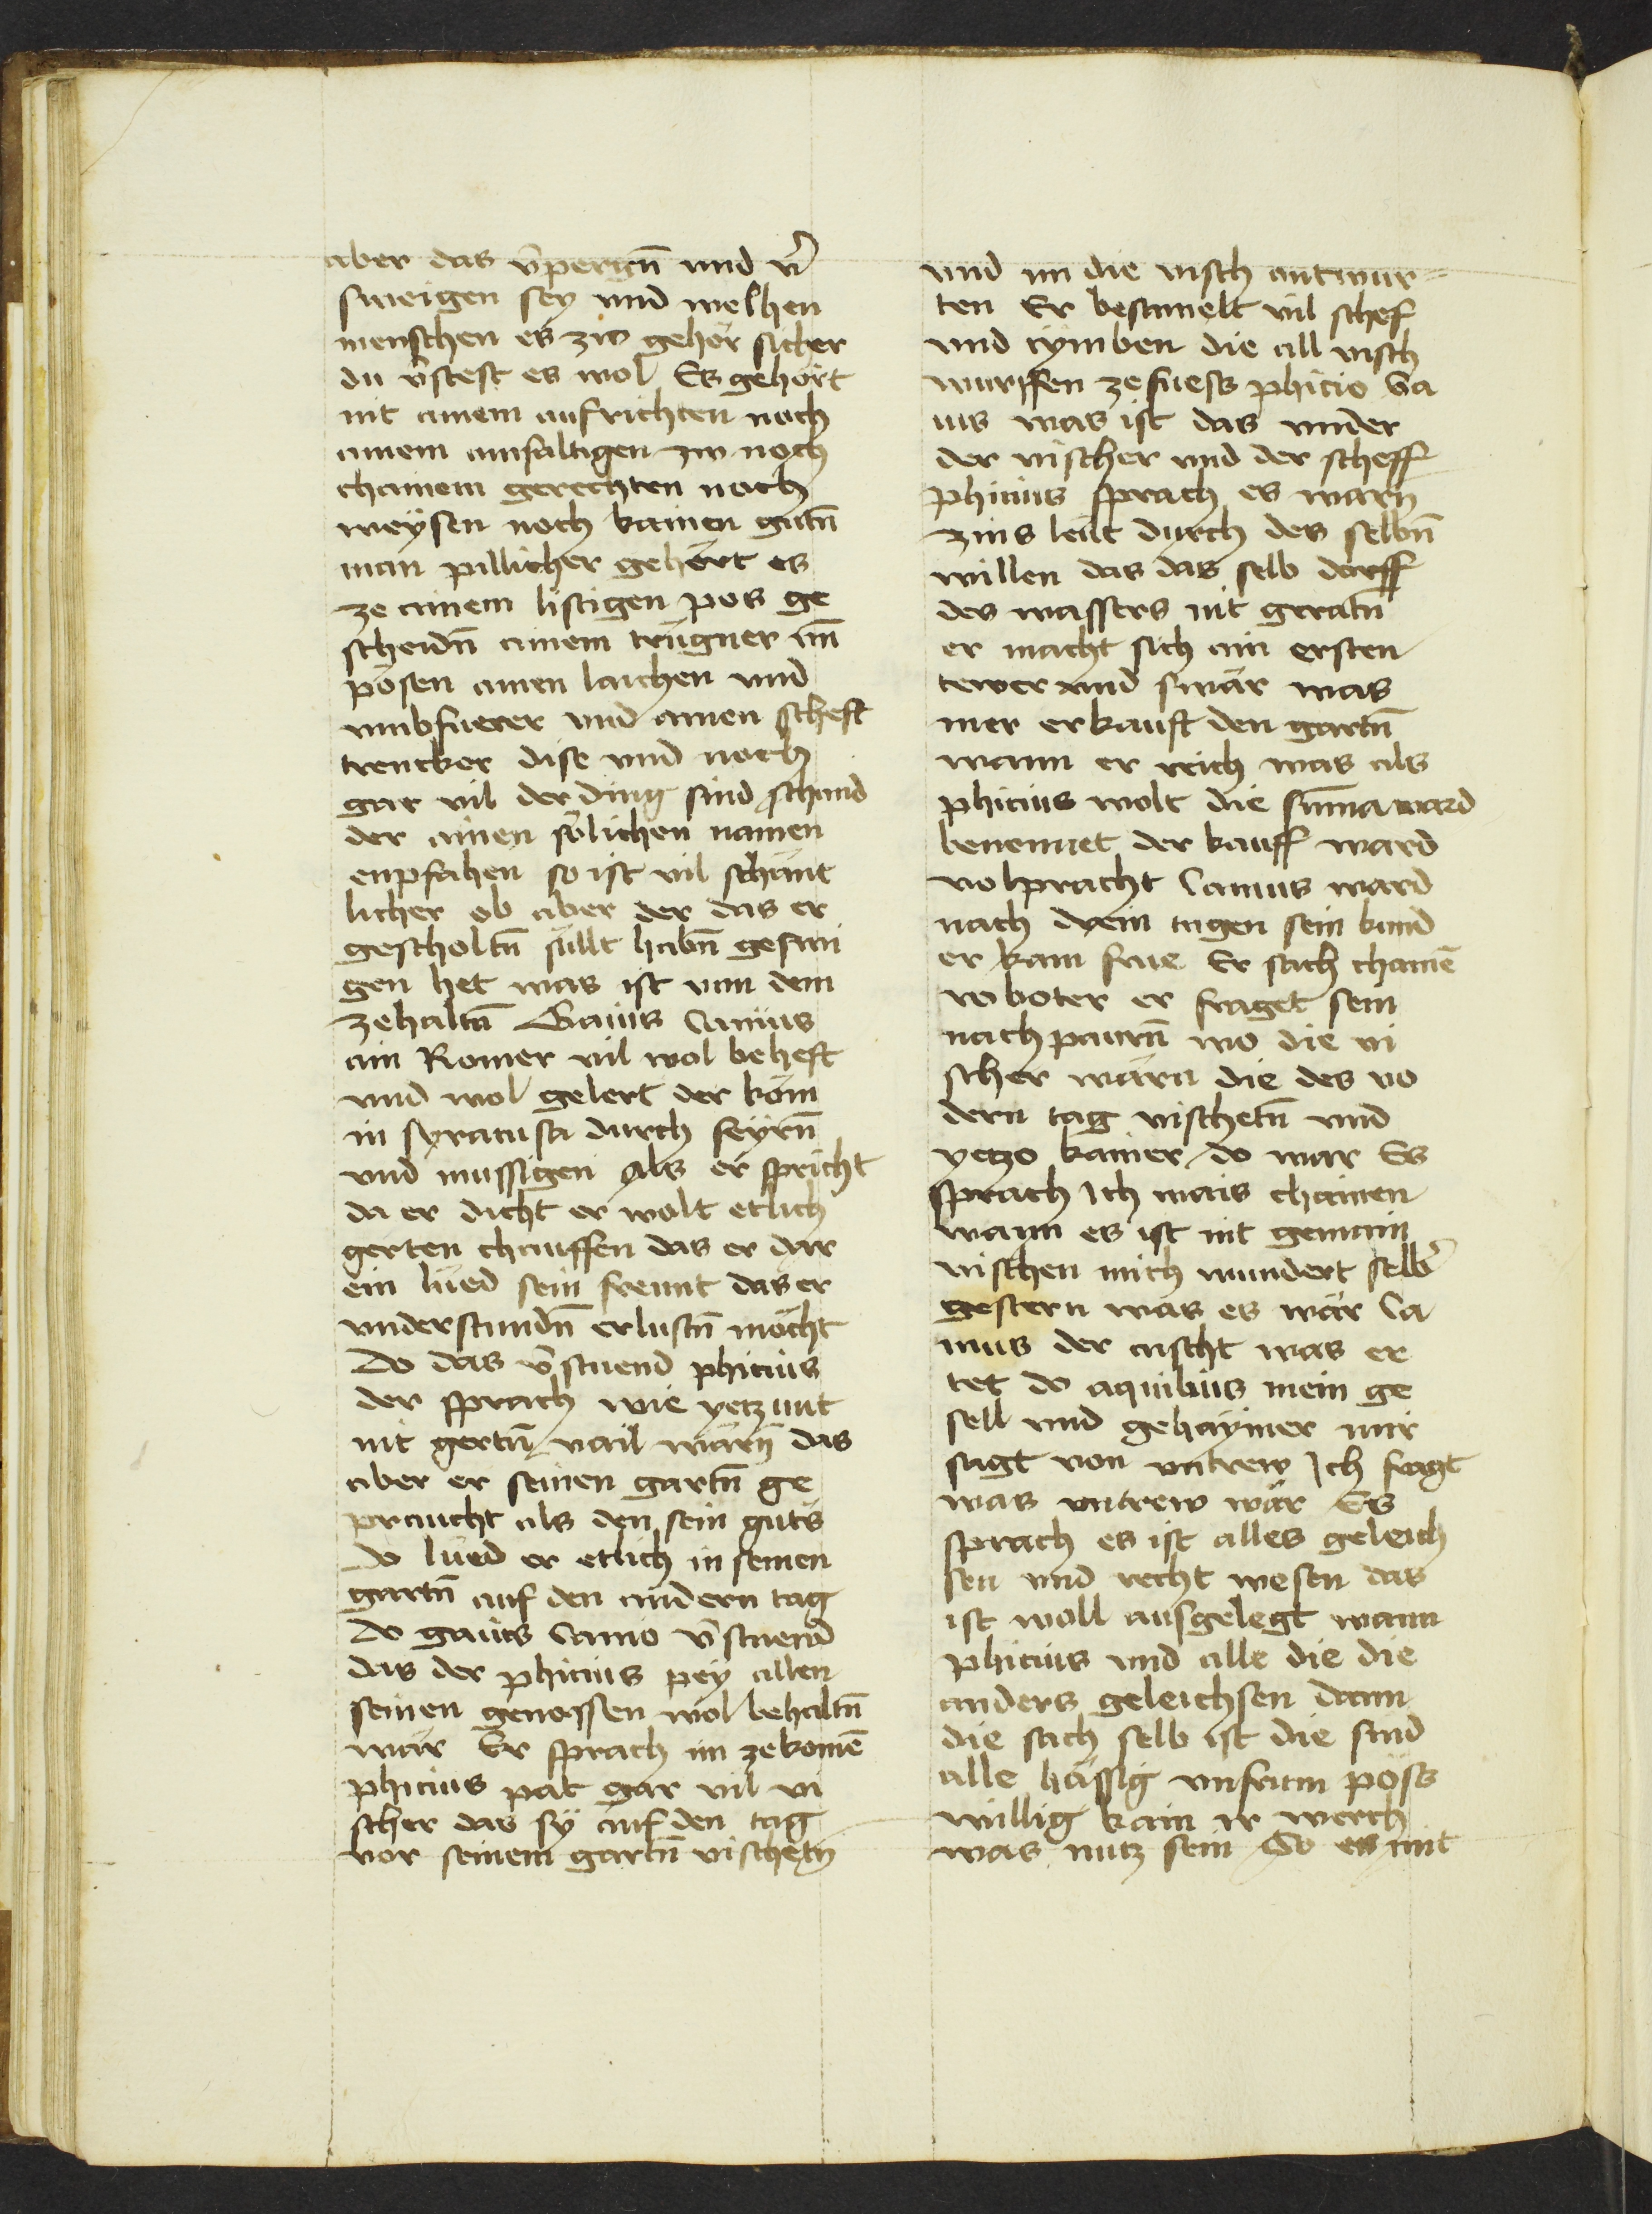 aber das v̄pergn̄ und v̄
sweigen sey und welhen
menschen es zw gehör sicher
du v̄stest es wol Es gehört
nit ainem aufrichten noch
ainem ainfaltigen zw noch
chainem gerechten noch
weÿsen noch kainen gutn̄
man pillicher gehört es
ze ainem listigen pos ge
scheidn̄ ainem trugner im̄
posen ainen laichen und
umbfuerer und ainen scheft
trencker dise und noch
gar vil der ding sind schand
der ainen sölichen namen
enpfahen so ist vil schant
licher ob aber der das er
gescholtn̄ süllt habn̄ geswi
gen het was ist von dem
zehaltn̄ Gaius Canius
ain Romer vil wol beheft
und wol gelert der köm
in syracusa durch feyrn̄
und mussigen als er spricht
da er dicht er wolt etlich
gerten chauffen das er dar
ein lued sein freunt das er
understundn̄ erlustn̄ möcht
do das v̄stuend phicius
der sprach wie yetzunt
nit gertn̄ vail wärn̄ das
aber er seinen gartn̄ ge
praucht als den sein guts
do lued er etlich in seinen
gartn̄ auf den andern tag
do gaius Canio v̄stuend
das der phicius pey allen
seinen genossen wol behaltn̄
wär Er sprach im zekomē
phicius pat gar vil vi
scher das sÿ auf den tag
vor seinem gartn̄ vischetn̄
und im die visch antwur=
ten Er besamelt vil schef
und cÿmben die all visch
wurffen ze fuess phicio Ga
ius was ist das under
der vischer und der scheff
phicius sprach es wärn̄
zins leut durch des selbn̄
willen das das selb dorff
des wassers nit geratn̄
er macht sich am ersten
tewer und swär was
mer er kauft den gartn̄
wann er reich was als
phicius wolt die sum̄a ward
benennet der kauff ward
volpracht Canius ward
nach dem tagen sein kund
er kam frue Er sach chainē
roboter er fraget sein
nachpaurn̄ wo die vi
scher wärn die des vo
dern tag vischetn̄ und
yetzo kainer do war Er
sprach Ich wais chainen
wann es ist nit gemain
vischen mich wundert selb̄
gestern was es wär Ca
nius der cuscht was er
tet do aquilius mein ge
sell und gehaÿmer mir
sagt von untrew Ich fragt
was untrew wär Er
sprach es ist alles geleich
sen und recht wesen das
ist woll ausgelegt wann
phicius und alle die die
anders geleichsen dann
die sach selb ist die sind
alle hässig unfrum pöss
willig kain ir werch
was nutz sein So es mit